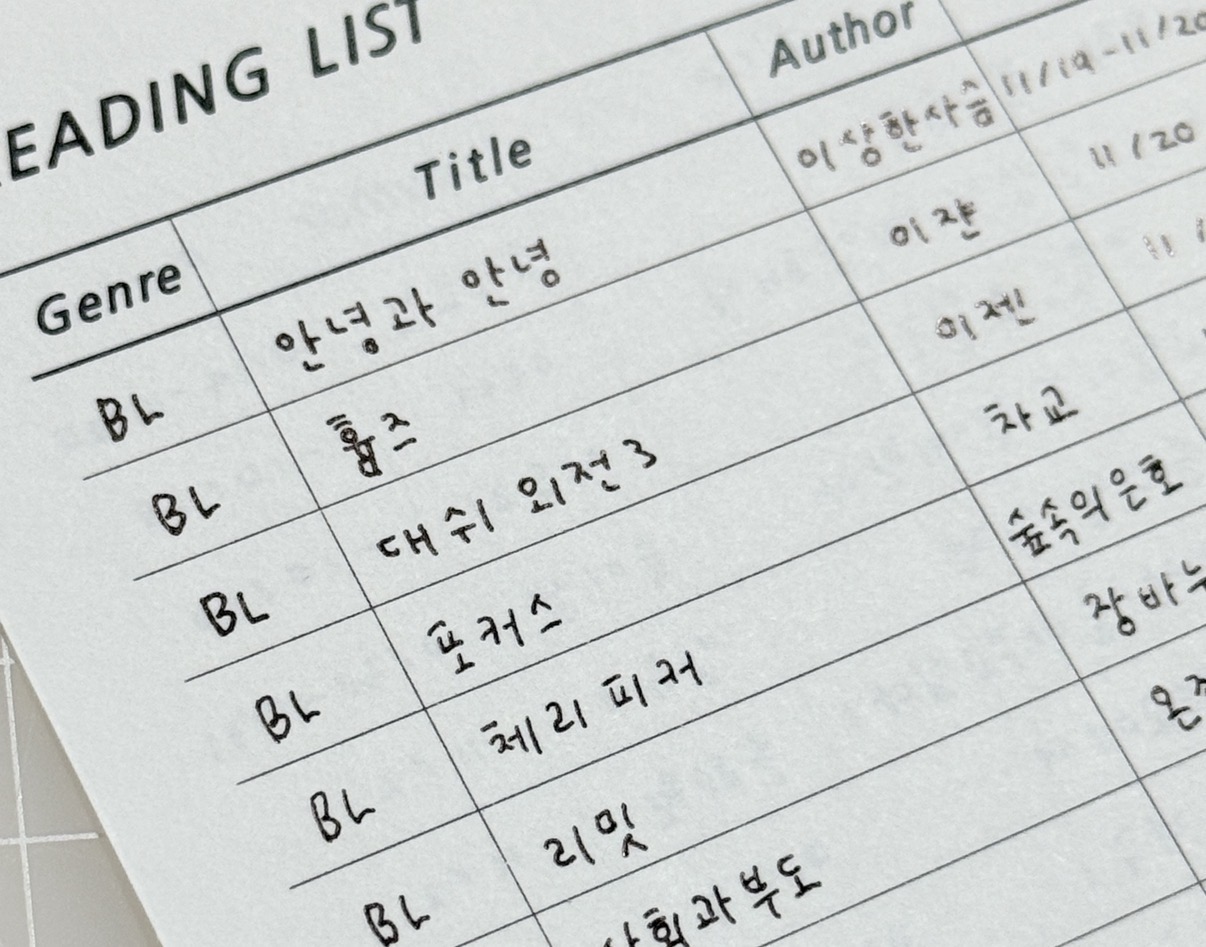 READING LIST
Genre Title Author
BL 안녕과 안녕 이상한사슴 11/19-11/20
BL 이쟌 11/20
BL 대쉬 외전3 이젠 11
BL 포커스 차교
BL 체리피커 숲속의은호
BL 리밋 장바
사회과부도 온